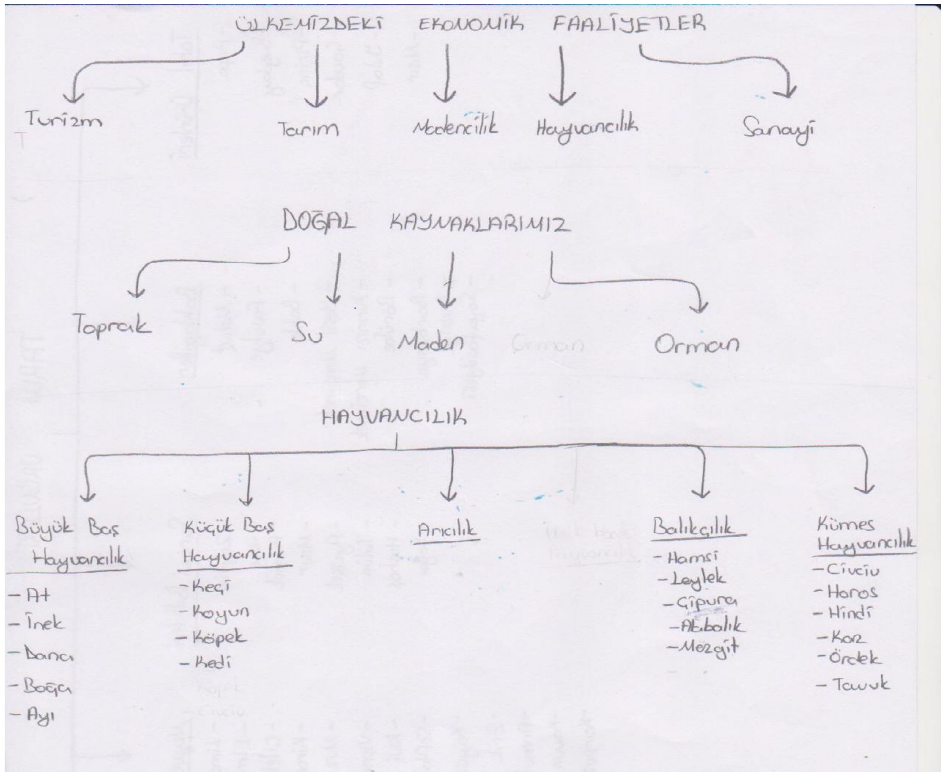 ÜLKEMİZDEKİ EKONOMİK FAALİYETLER
Turizm Tarım Madencilik Hayvancılık Sanayi
DOĞAL KAYNAKLARIMIZ
Toprak Su Maden Orman Orman
HAYVANCILIK
Büyük Baş
Hayvancılık
- At
- İnek
- Dana
- Boğa
- Ayı
Küçük Baş
Hayvancılık
- Keçi
- Koyun
- Köpek
- Kedi
Arıcılık
Balıkçılık
- Hamsi
- Leylek
- Çipura
- Alabalık
- Mezgit
Kümes
Hayvancılık
- Civciv
- Horos
- Hindi
- Kaz
- Ördek
- Tavuk